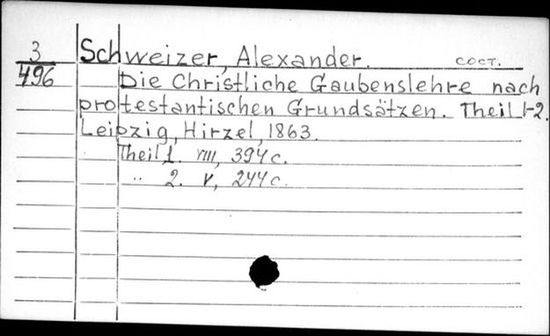 3
496
Schweizer, Alexander. сост.
Die Christliche Gaubenslehre nach
protestantischen Grundsätzen. Theil 1-2.
Leipzig, Hirzel, 1863.
Theil 1. VIII, 394 с.
" 2. V, 244 с.